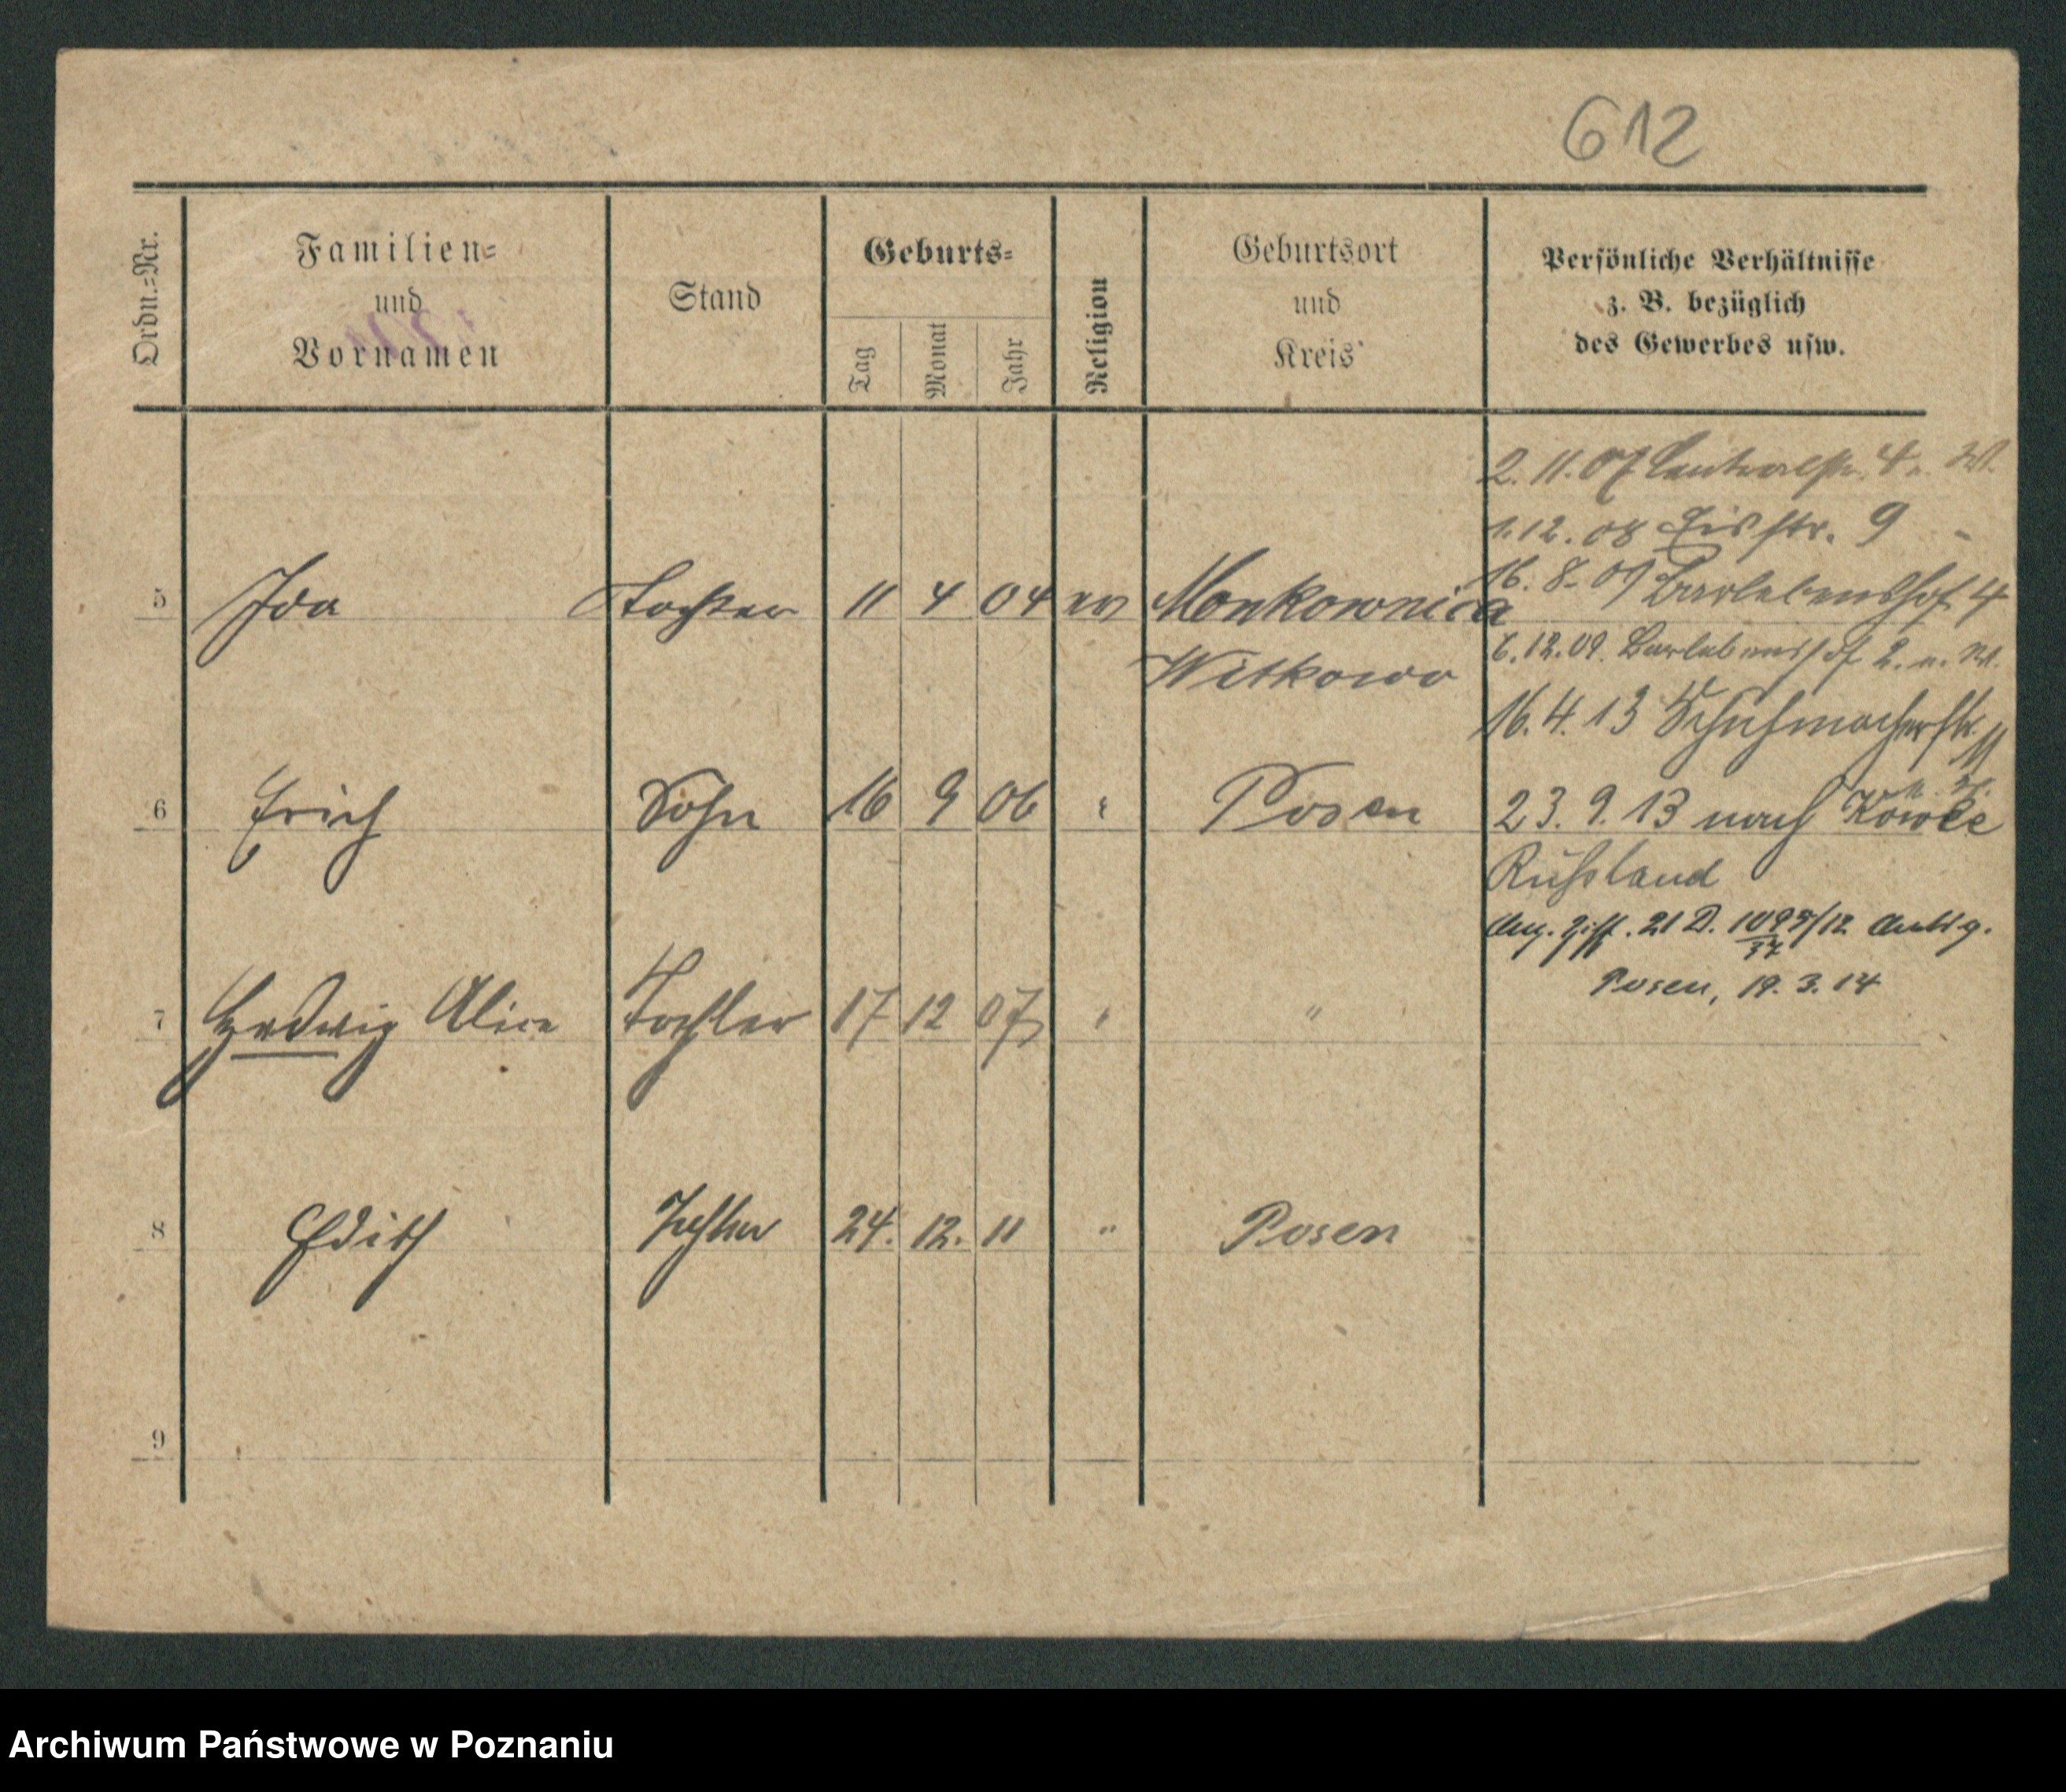 612
Ordn.=Nr.
Familien=
und
Vornamen
Stand
Geburts=
Tag
Monat
Jahr
Religion
Geburtsort
und
Kreis
Persönliche Verhältnisse
z. B. bezüglich
des Gewerbes usw.
2. 11. 07 Centralstr. 4 n. W.
1. 12. 08 str. 9
16. 8. 09 Barlebenshof 4
5 Ida Tochter 11 4 04 ev Monkownica
6. 12. 09. Barlebenshof 2. n. W.
Witkowo
16. 4. 13 Schuhmacherstr. 11
6 Erich Sohn 16 9 06 " Posen
23. 9. 13 nach
Rußland
21 D. 1095/12
Posen, 19. 3. 14
7 Hedwig Alice Tochter 17 12 07 " "
8 Edith Tochter 24. 12. 11 " Posen
9
Archiwum Państwowe w Poznaniu